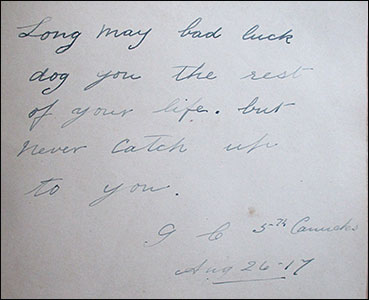 Long may bad luck
dog you the rest
of your life. but
never catch up
to you.
G C 5th Canucks
Aug 26-17